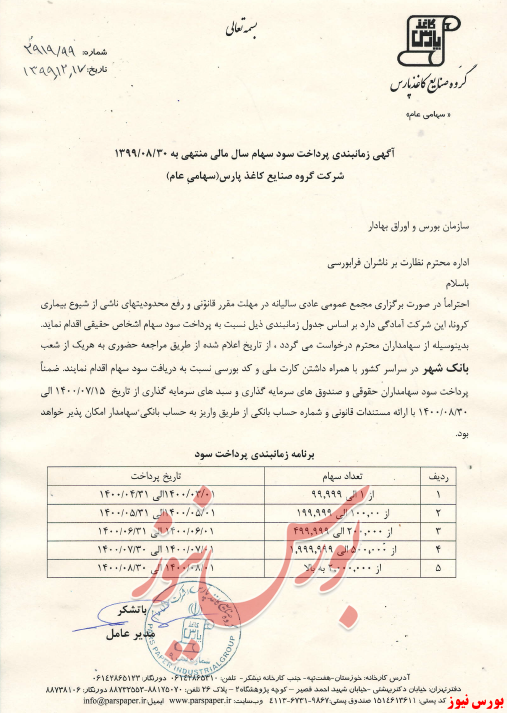 بسمه تعالی
کاغذ پارس
گروه صنایع کاغذ پارس
« سهامی عام»
شماره: ۲۹۱۹/۹۹
تاریخ: ۱۳۹۹,۱۲,۱۷
آگهی زمانبندی پرداخت سود سهام سال مالی منتهی به ۱۳۹۹/۰۸/۳۰
شرکت گروه صنایع کاغذ پارس(سهامی عام)
سازمان بورس و اوراق بهادار
اداره محترم نظارت بر ناشران فرابورسی
باسلام
احتراماً در صورت برگزاری مجمع عمومی عادی سالیانه در مهلت مقرر قانونی و رفع محدودیتهای ناشی از شیوع بیماری
کرونا، این شرکت آمادگی دارد بر اساس جدول زمانبندی ذیل نسبت به پرداخت سود سهام اشخاص حقیقی اقدام نماید.
بدینوسیله از سهامداران محترم درخواست می گردد ، از تاریخ اعلام شده از طریق مراجعه حضوری به هریک از شعب
بانک شهر در سراسر کشور با همراه داشتن کارت ملی و کد بورسی نسبت به دریافت سود سهام اقدام نمایند. ضمناً
پرداخت سود سهامداران حقوقی و صندوق های سرمایه گذاری و سبد های سرمایه گذاری از تاریخ ۱۴۰۰/۰۷/۱۵ الی
۱۴۰۰/۰۸/۳۰ با ارائه مستندات قانونی و شماره حساب بانکی از طریق واریز به حساب بانکی سهامدار امکان پذیر خواهد
بود.
برنامه زمانبندی پرداخت سود
ردیف تعداد سهام تاریخ پرداخت
۱ از ۱ الی ۹۹,۹۹۹ ۱۴۰۰/۰۲/۰۱الی ۱۴۰۰/۰۴/۳۱
۲ از ۱۰۰,۰۰۰ الی ۱۹۹,۹۹۹ ۱۴۰۰/۰۵/۰۱الی ۱۴۰۰/۰۵/۳۱
۳ از ۲۰۰,۰۰۰ الی ۴۹۹,۹۹۹ ۱۴۰۰/۰۶/۰۱الی ۱۴۰۰/۰۶/۳۱
۴ از ۵۰۰,۰۰۰ الی ۱,۹۹۹,۹۹۹ ۱۴۰۰/۰۷/۰۱الی ۱۴۰۰/۰۷/۳۰
۵ از ۲,۰۰۰,۰۰۰ به بالا ۱۴۰۰/۰۸/۰۱الی ۱۴۰۰/۰۸/۳۰
بورس نیوز
باتشکر
مدیر عامل
کاغذ پارس
PARS PAPER INDUSTRIAL GROUP
آدرس کارخانه: خوزستان-هفت تپه- جنب کارخانه نیشکر- تلفن: ۰۶۱۴۲۸۶۵۳۱۰ دورنگار: ۰۶۱۴۲۸۶۵۱۲۳
دفترتهران: خیابان دکتربهشتی- خیابان شهید احمد قصیر – کوچه پژوهشگاه۲ – پلاک ۲۶ تلفن: ۸۸۱۷۵۰۷۰-۸۸۷۳۲۵۵۳ دورنگار: ۸۸۷۳۸۱۰۶
کد پستی: ۱۵۱۴۶۱۳۶۱۱ صندوق پستی:۹۸۶۷-۶۷۳۱-۴۱۱۳ وب‌سایت: www.parspaper.ir ایمیل:info@parspaper.ir
بورس نیوز